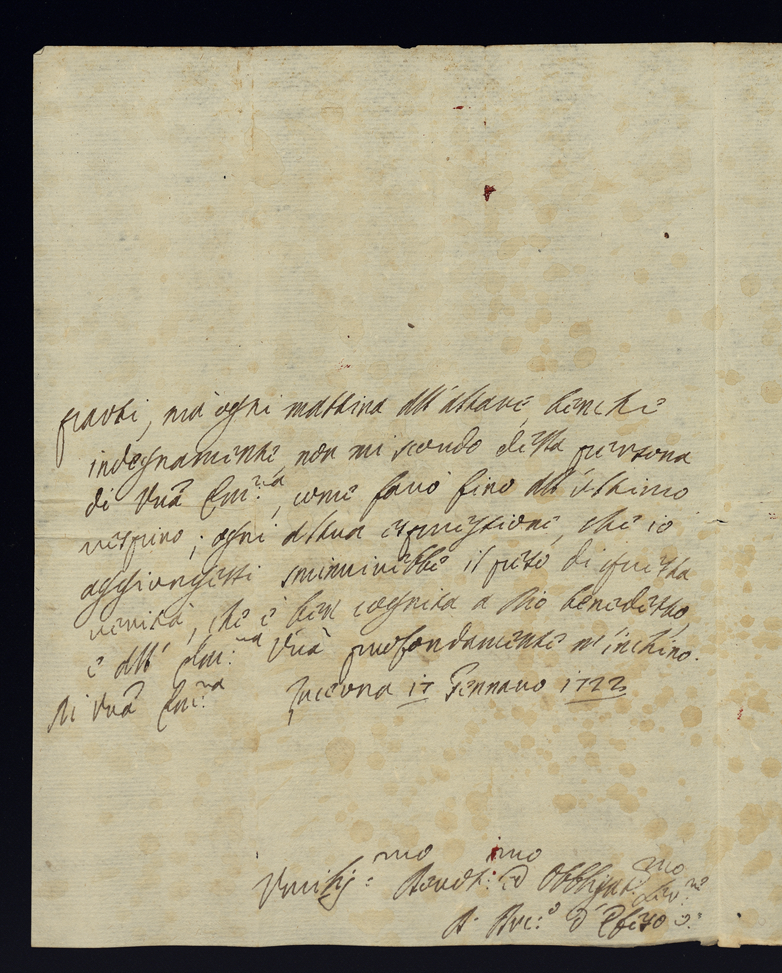 ma ogni mattina all'altare, benche
indegnamente, non mi scordo della persona
di Vrã Em:za, come farò fino all'ultimo
respiro; ogni altra espressione, che io
aggiungessi sminuirebbe il peso di questa
verità, che è ben cognita a Dio benedetto,
e all' Em:za Vrã profondamente m'inchino.
Di Vrã Em:za Lucerna 17 Gennaro 1722
Umilis:mo Devot:imo ed Obbligat:mo Ser:re
Arc:o d'Efeso